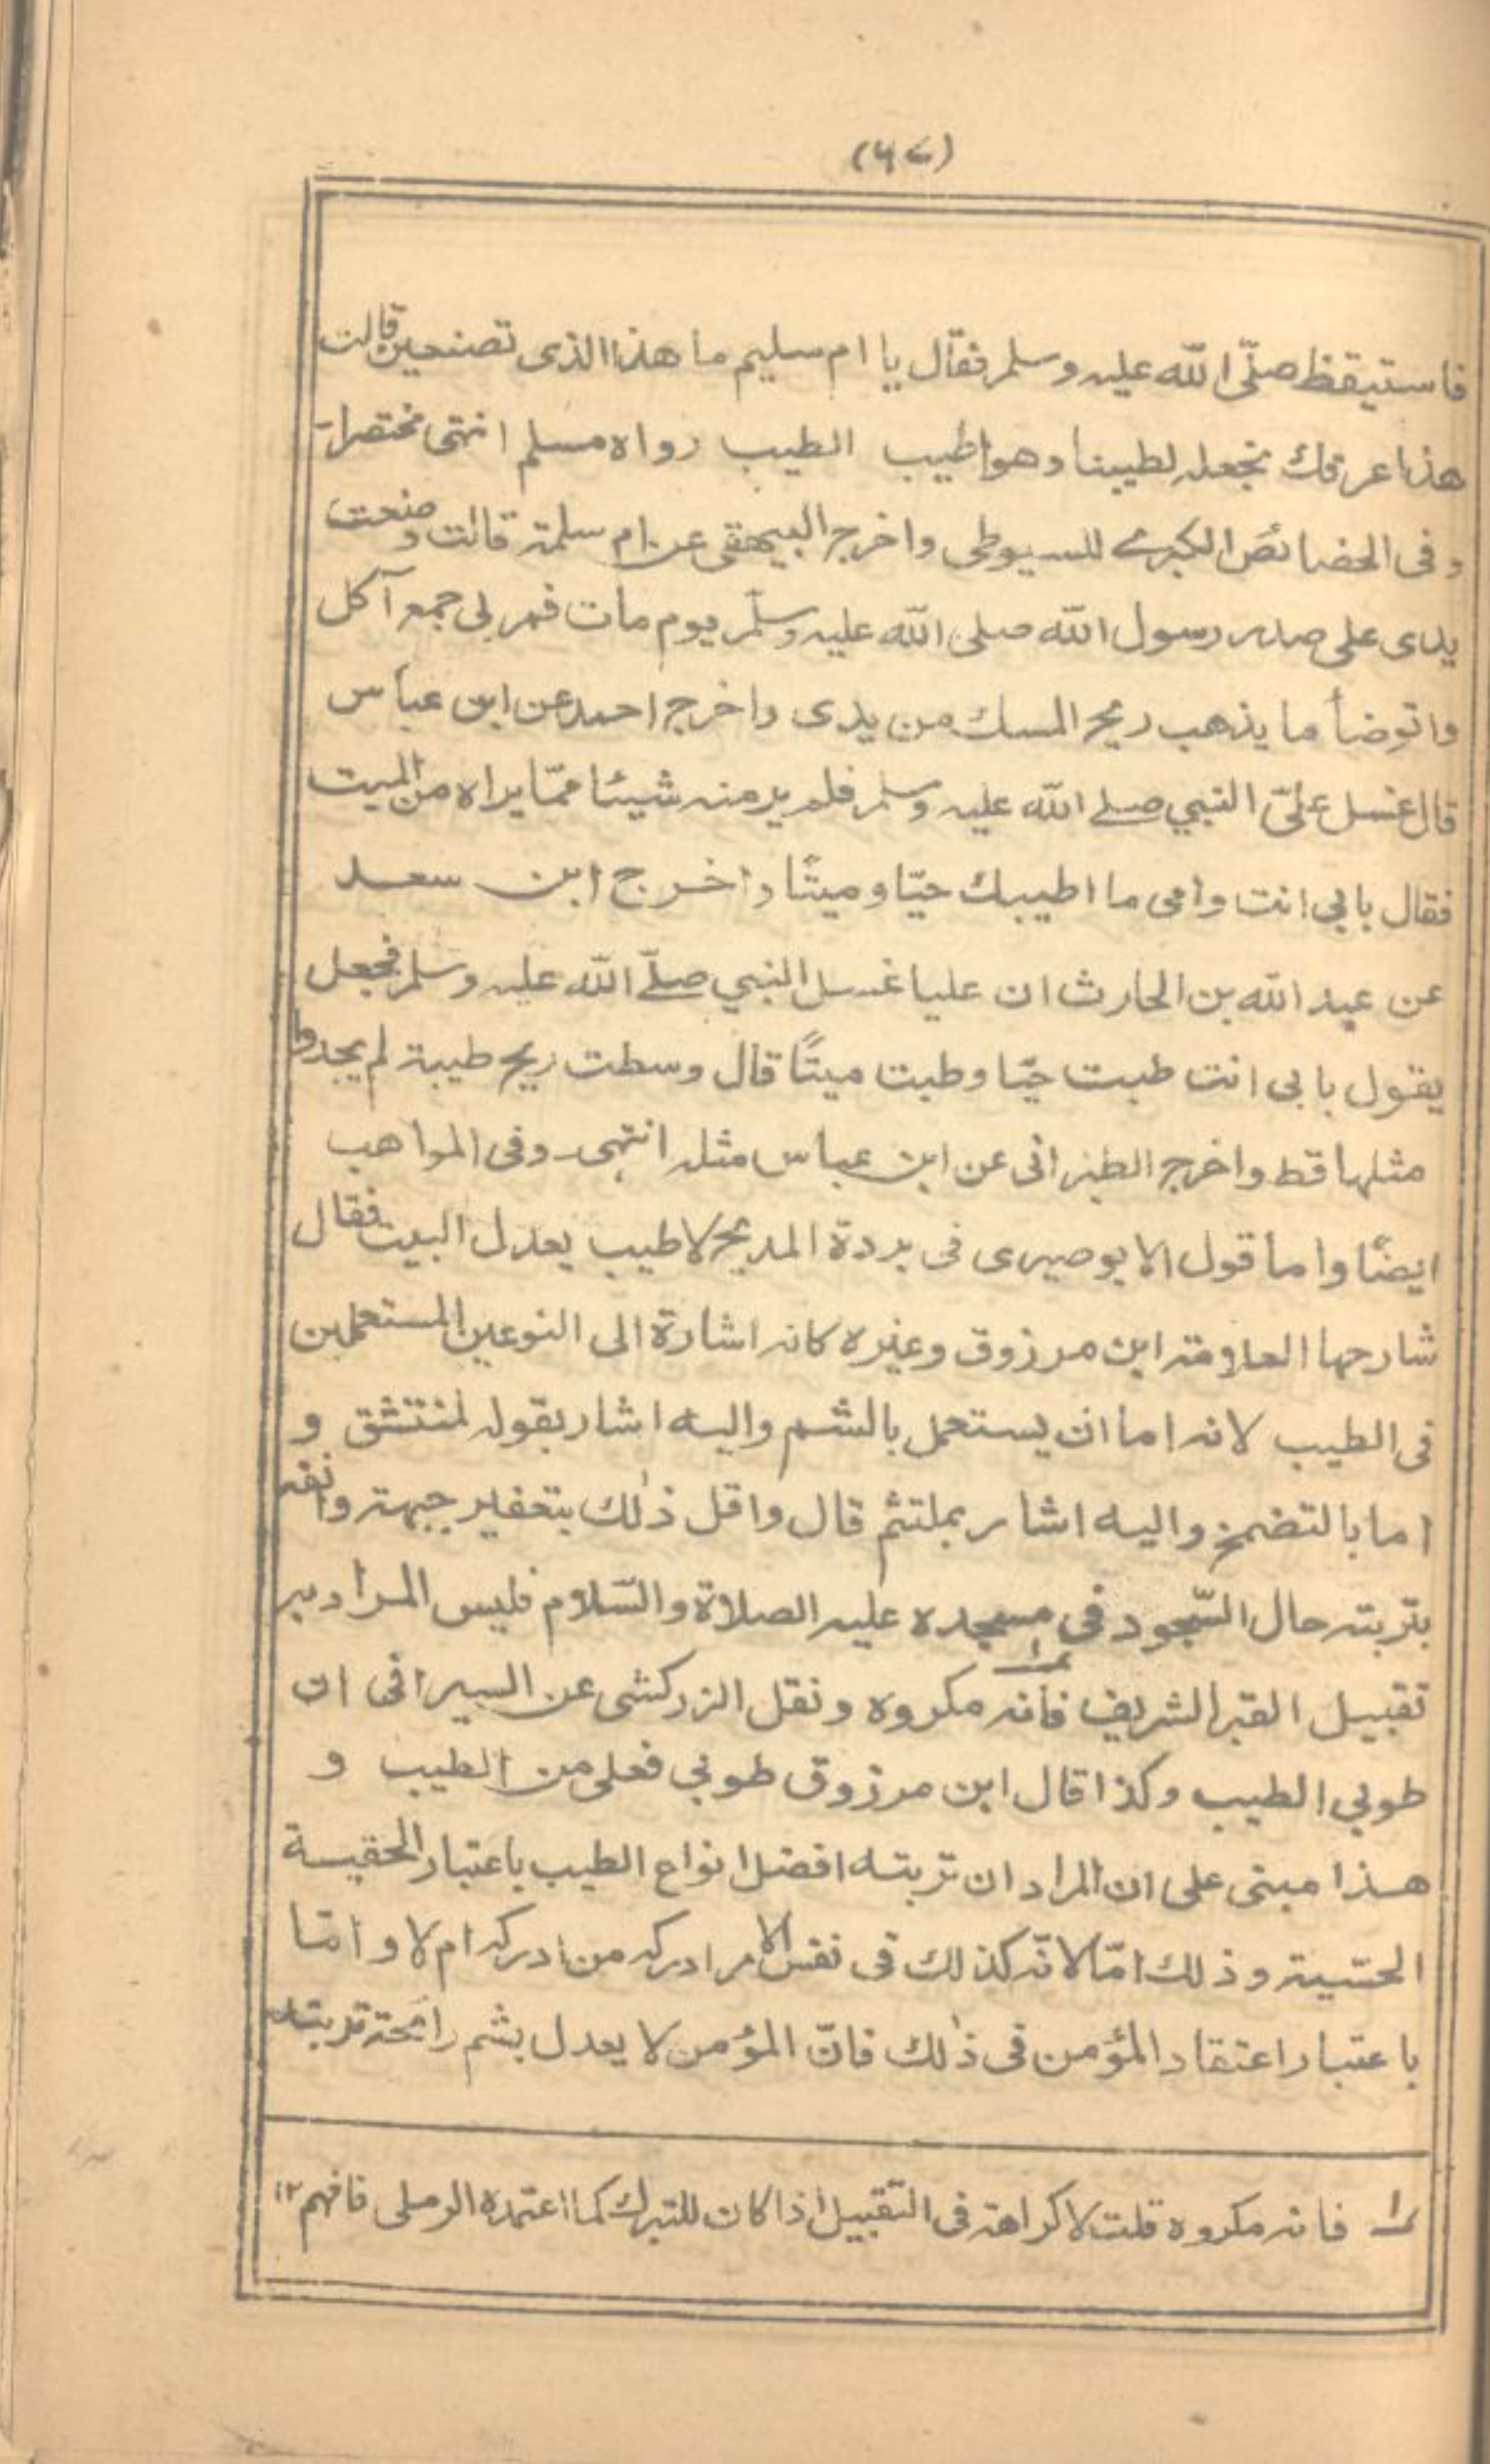 (٦٧)
فاستيقظ صلّى الله عليه وسلم فقال يا ام سليم ما هذا الذى تصنعين قالت
هذا عرقك نجعله لطيبنا وهو اطيب الطيب رواه مسلم انتهى مختصرا۔
وفى الخصائص الكبرے للسيوطى واخرج البيهقى عن ام سلمة قالت وضعت
يدى على صدر رسول الله صلى الله عليه وسلّم يوم مات فمر بى جمع آكل
واتوضأ ما يذهب ريح المسك من يدى واخرج احمد عن ابن عباس
قال غسل علىّ النبي صلے الله عليه وسلم فلم ير منه شيئا ممّا يراه من الميت
فقال بابى انت وامى ما اطيبك حيّا وميتًا واخرج ابن سعد
عن عبد الله بن الحارث ان عليا غسل النبي صلّے الله عليه وسلم فجعل
يقول بابى انت طبت حيّا وطبت ميتًا قال وسطت ريح طيبة لم يجدوا
مثلها قط واخرج الطبرانى عن ابن عباس مثله انتهى وفى المواهب
ايضًا واما قول الابوصيرى فى بردة المديح لا طيب يعدل البيت فقال
شارحها العلامة ابن مرزوق وغيره كانه اشارة الى النوعين المستعملين
فى الطيب لانه اما ان يستعمل بالشم واليه اشار بقوله لمنتشق و
اما بالتضمخ واليه اشار بملتثم قال واقل ذٰلك بتعفير جبهته وانفه
بتربته حال السّجود فى مسجده عليه الصلاة والسّلام فليس المراد به
تقبيل القبر الشريف فانه ؎١ مكروه ونقل الزركشى عن السيرافى ان
طوبي الطيب وكذا قال ابن مرزوق طوبي فعلى من الطيب و
هذا مبنى على ان المراد ان تربته افضل انواع الطيب باعتبار الحقيسة
الحسّية وذلك امّا لانّه كذلك فى نفس الامر ادركه من ادركه ام لا وامّا
باعتبار اعتقاد المؤمن فى ذٰلك فانّ المؤمن لا يعدل بشم رائحة تربته
؎١ فانه مكروه قلت لا كراهة فى التقبيل اذا كان للتبرك كما اعتمده الرملى فافهم ١٢